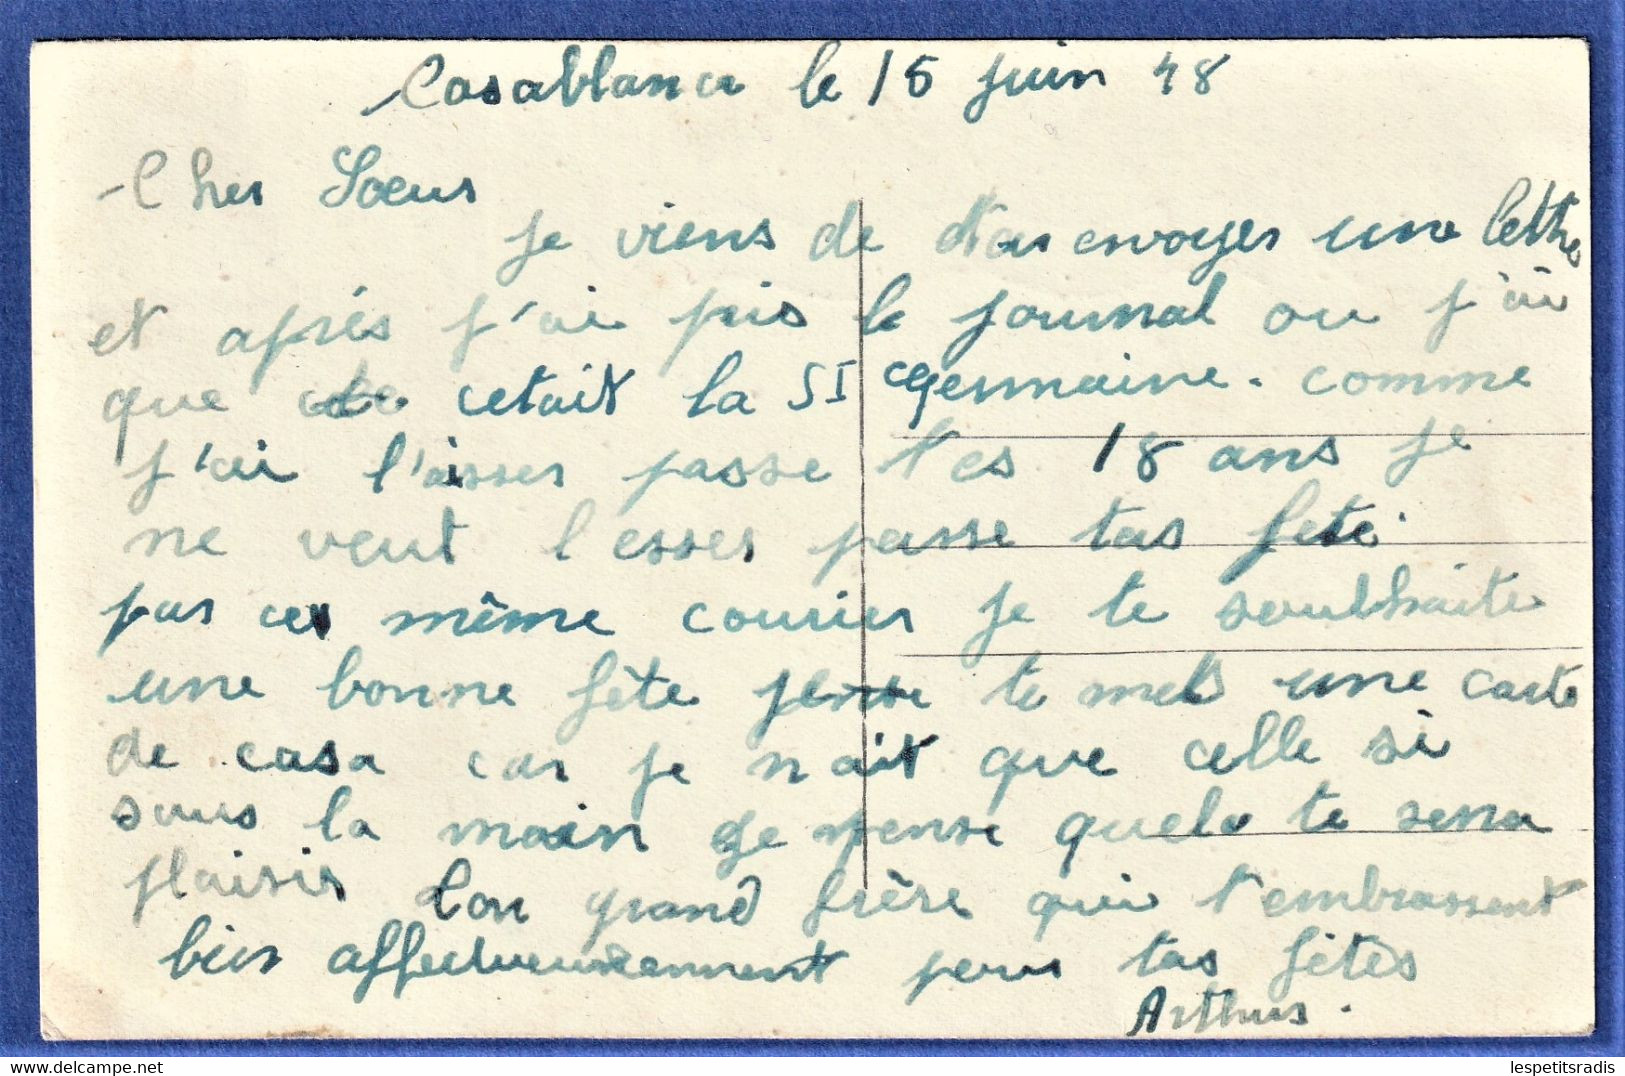 Casablanca le 15 juin 48
Cher Soeur
je viens de t'as envoyer une lettre
et après j'ai pris le journal ou j'ai
que cetait la St Germaine. comme
j'ai l'aisser passe tes 18 ans je
ne veut lesser passe tas fete.
par ce même courier je te soulhaite
une bonne fête je te mes une carte
de casa car je n'ait que celle si
sous la main je pense quele te sera
plaisir ton grand frère qui t'embrassent
bien affectueusement pour tas fêtes
Arthur.
lespetitsradis